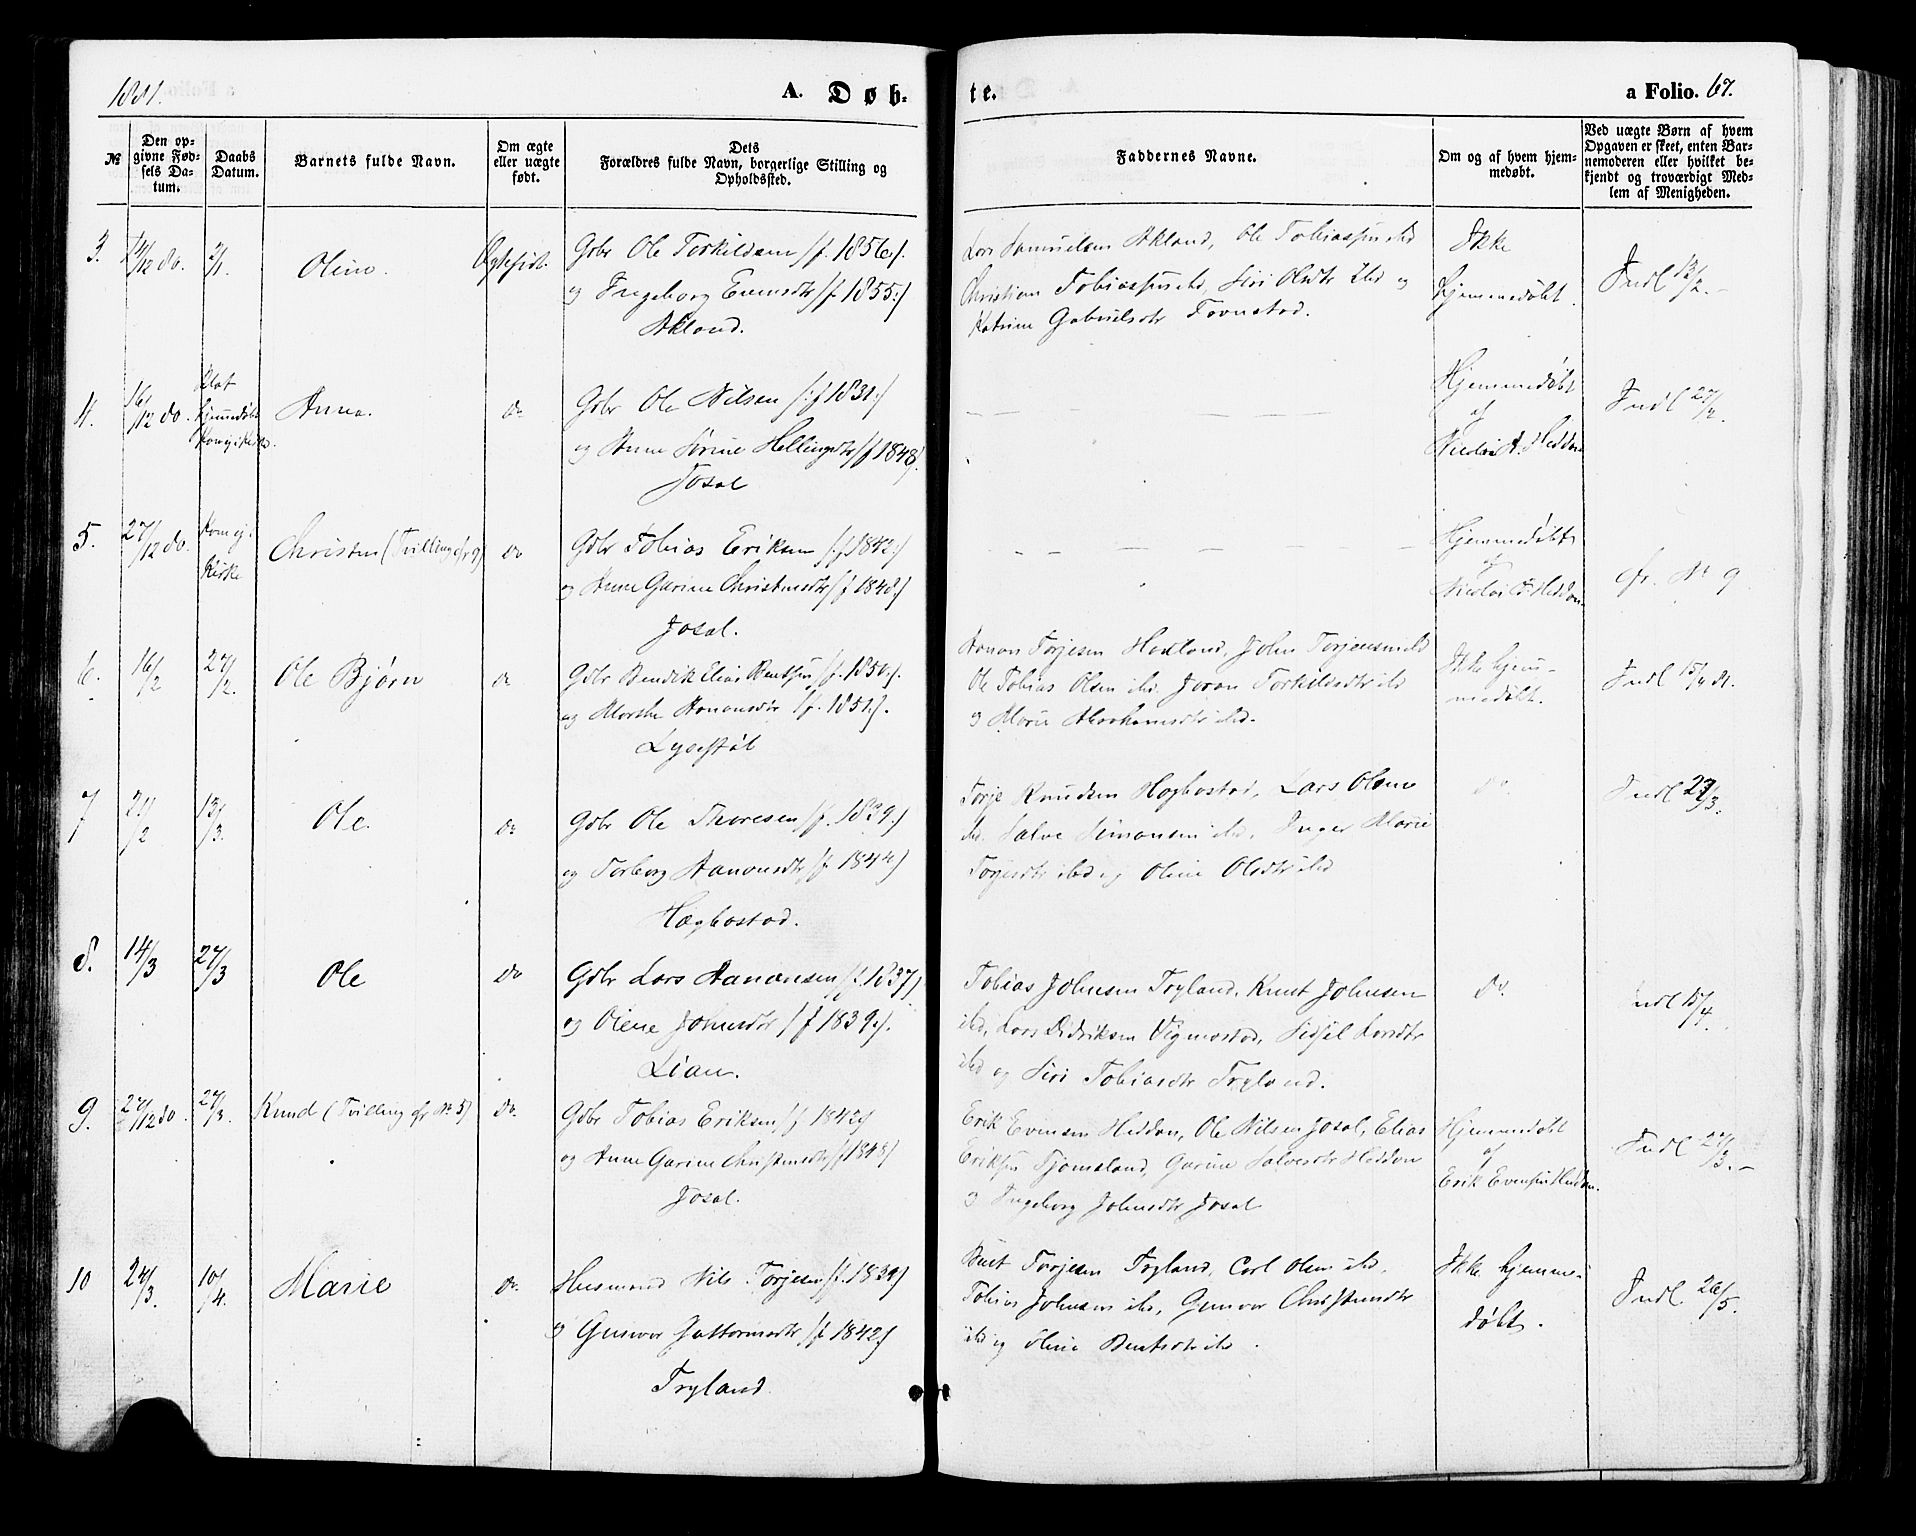 1881.
A. Døbte.
a Folio. 67.
№
Den opgivne Fødsels Datum.
Daabs Datum.
Barnets fulde Navn.
Om ægte eller uægte født.
Dets Forældres fulde Navn, borgerlige Stilling og Opholdssted.
Faddernes Navne.
Om og af hvem hjemmedøbt.
Ved uægte Børn af hvem Opgaven er skeet, enten Barnemoderen eller hvilket bekjendt og troværdigt Medlem af Menigheden.
3. 14/12 do. 2/1. Oline. Ægtefødt.
Gdbr Ole Torkildsen /f. 1856/.
og Ingeborg Evensdtr /f 1855:/
Akland.
Lars Samuelsen Akland, Ole Tobiassen ibd
Christian Tobiassen ibd, Siri Olsdtr Ibd og
Katrine Gabrielsdtr Tovnstad.
Ikke
hjemmedøbt.
Indl 13/2.
4. 16/12 do. Blot hjemmedøbt Kom ej i Kirke. Anna. do
Gdbr Ole Nilsen /:f 1831:/
og Anne Sørine Hellingsdtr /f 1848/
Josal
Hjemmedøbt
af
Nicolai A. Heddon
Indl 27/2.
5. 27/12 do. Kom ej i Kirke Christen (Tvilling cfr 9) do
Gdbr Tobias Eriksen /f. 1842:/
og Anne Garine Christensdtr /f 1848:/
Josal.
Hjemmedøbt
af
Nicolai A. Heddon.
cfr. No 9
6. 16/2 27/2. Ole Bjørn do
Gdbr Bendik Elias Bentsen /f. 1850:/.
og Marthe Aanonsdtr /f. 1851:/.
Lysestøl
Aanon Torjesen Haaland, John Torjensen ibd
Ole Tobias Olsen ibd. Joran Torkildsdtr ibd
og Marie Abrahamsdtr ibd.
Ikke hjem-
medøbt.
Indl 15/4 81.
7 21/2 13/3. Ole. do
Gdbr Ole Thoresen /f. 1839:/
og Torborg Aanonsdtr /f 1844/
Høgbostad.
Torje Knudsen Høgbostad, Lars Olsen
ibd. Salve Simonsen ibd, Inger Marie
Torjesdtr ibd og Oline Olsdtr ibd
do.
Indl 23/3.
8. 14/3 27/3 Ole do
Gdbr Lars Aanonsen /f. 1837/
og Olene Johnsdtr /f 1839:/.
Lian.
Tobias Johnsen Tryland, Knut Johnsen
ibd, Lars Didriksen Vigmostad, Sidsel Larsdtr
ibd og Siri Tobiasdtr Tryland.
do.
Indl 15/4.
9. 27/12 do 27/3. Knud (Tvilling cfr No 5) do.
Gdbr Tobias Eriksen /f 1842/
og Anne Garine Christensdtr /f 1848/
Josal.
Erik Evensen Heddon, Ole Nilsen Josal, Elias
Eriksen Tjomsland, Garine Salvesdtr Heddon
og Ingeborg Johnsdtr Josal
Hjemmedøbt
af
Erik Evensen Heddon.
Indl 27/3.
10 24/3. 10/4. Marie do.
Husmand Nils Torjesen /f. 1839/
og Gunvor Guttormsdtr /f 1842/
Tryland
Bent Torjesen Tryland, Carl Olsen ibd,
Tobias Johnsen ibd, Gunvor Christensdtr
ibd og Oline Bentsdtr ibd.
Ikke hjemme-
døbt.
Indl. 26/5.